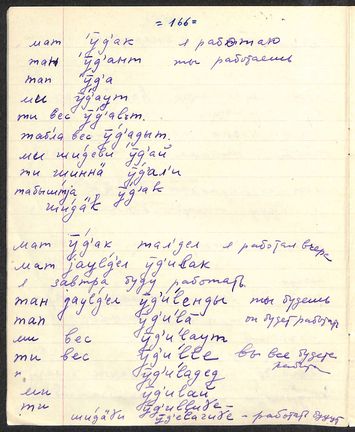 =166=
мат ӱ̄д'ак я работаю
тан ӱ̄д'ант ты работаешь
тап ӱ̄д'а
мы ӱ̄д'аут
ти вес ӱ̄д'авыт.
табла вес ӱ̄д'адыт.
мы шидеви ӱ̄д'ай
ти шиннӓ ӱ̄д'ал'и
табыштjа ӱ̄д'ак
шидӓк
мат ӱ̄д'ак тал'дел я работал вчера
мат jаувд'ел ӱ̄д'ивак
я завтра буду работать
тан jаувд'ел ӱ̄д'ивенды ты будешь
тап ӱ̄д'ива он будет работать
ми вес ӱ̄д'иваут
ти вес ӱ̄д'ивле вы все будете
работать
ӱ̄д'ивадед
ми ӱ̄д'ивай
ти
шидӓди - работать будут